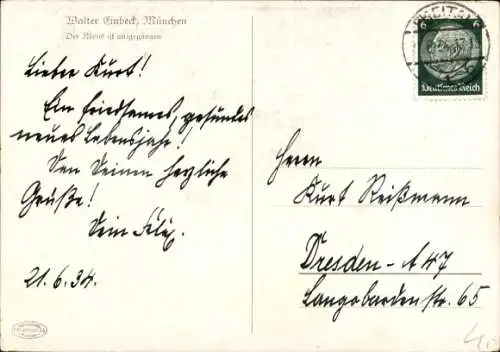 Walter Einbeck, München
Der Mond ist aufgegangen
Lieber Kurt!
Ein friedsames, gesundes
neues Lebensjahr!
Den Deinen herzliche
Grüße!
Dein Felix.
21.6.34.
6 6
Deutsches Reich
Herrn
Kurt Reißmann
Dresden - A 47
Langobardenstr. 65